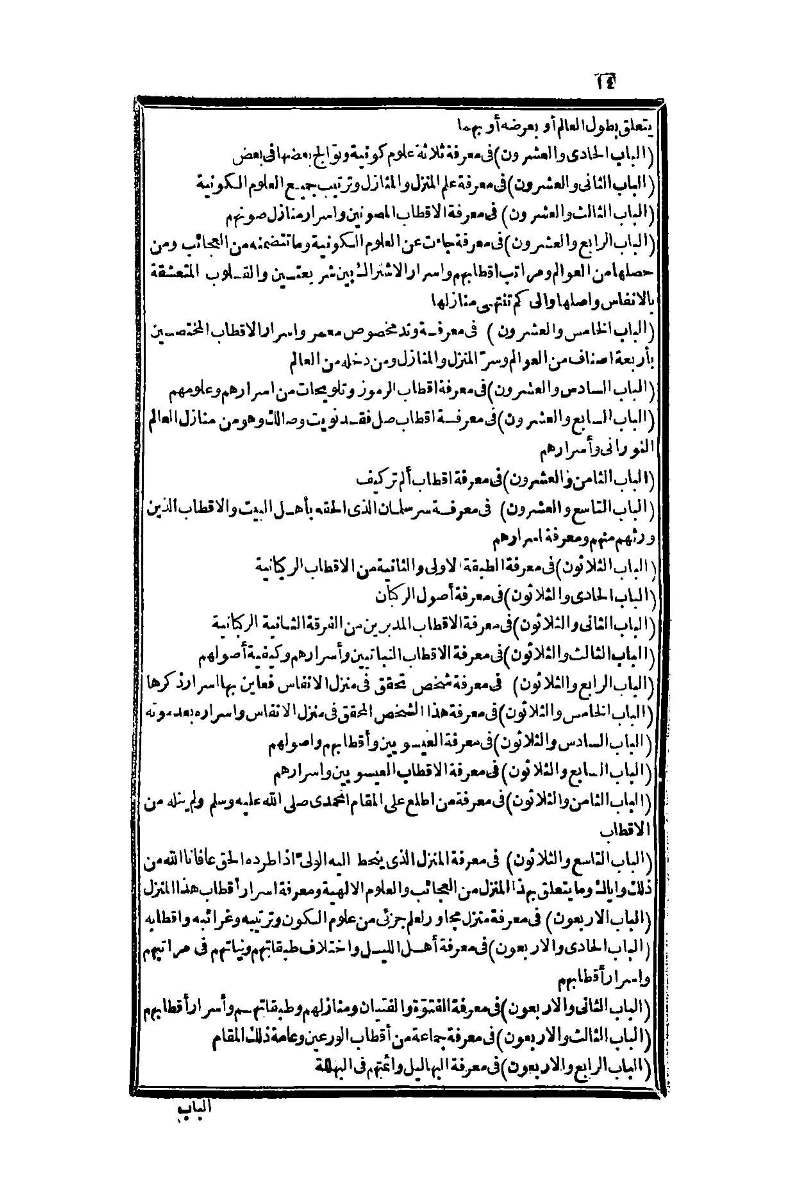 ١٤
يتعلق بطول العالم أو بعرضه أو بهما
(الباب الحادى والعشرون) فى معرفة ثلاثة علوم كونية وتوالج بعضها فى بعض
(الباب الثانى والعشرون) فى معرفة علم المنزل والمنازل وترتيب جميع العلوم الكونية
(الباب الثالث والعشرون) فى معرفة الاقطاب المصونين واسرار منازل صونهم
(الباب الرابع والعشرون) فى معرفة جاءت عن العلوم الكونية وما تتضمنه من العجائب ومن
حصلها من العوالم ومراتب اقطابهم واسرار الاشتراك بين شريعتين والقلوب المتعشقة
بالانفاس واصلها والى كم تنتهى منازلها
(الباب الخامس والعشرون) فى معرفة وتد مخصوص معمر واسرار الاقطاب المختصين
بأربعة اصناف من العوالم وسرّ المنزل والمنازل ومن دخله من العالم
(الباب السادس والعشرون) فى معرفة اقطاب الرموز وتلويحات من اسرارهم وعلومهم
(الباب السابع والعشرون) فى معرفة اقطاب صل فقد نويت وصالك وهو من منازل العالم
النورانى وأسرارهم
(الباب الثامن والعشرون) فى معرفة اقطاب ألم تركيف
(الباب التاسع والعشرون) فى معرفة سر سلمان الذى الحقه بأهل البيت والاقطاب الذين
ورثهم منهم ومعرفة اسرارهم
(الباب الثلاثون) فى معرفة الطبقة الاولى والثانية من الاقطاب الركانية
(الباب الحادى والثلاثون) فى معرفة أصول الركبان
(الباب الثانى والثلاثون) فى معرفة الاقطاب المدبرين من الفرقة الثانية الركبانية
(الباب الثالث والثلاثون) فى معرفة الاقطاب النياتيين وأسرارهم وكيفية أصولهم
(الباب الرابع والثلاثون) فى معرفة شخص تحقق فى منزل الانفاس فعاين بها اسرار ذكرها
(الباب الخامس والثلاثون) فى معرفة هذا الشخص المحقق فى منزل الانفاس واسراره بعد موته
(الباب السادس والثلاثون) فى معرفة العيسويين وأقطابهم واصولهم
(الباب السابع والثلاثون) فى معرفة الاقطاب العيسويين واسرارهم
(الباب الثامن والثلاثون) فى معرفة من اطلع على المقام المحمدى صلى الله عليه وسلم ولم ينله من
الاقطاب
(الباب التاسع والثلاثون) فى معرفة المنزل الذى ينحط اليه الولىّ اذا طرده الحق عافانا الله من
ذلك واياك وما يتعلق بهذا المنزل من العجائب والعلوم الالهية ومعرفة اسرار أقطاب هذا المنزل
(الباب الاربعون) فى معرفة منزل مجاور لعلم جزئى من علوم الكون وترتيبه وغرائبه واقطابه
(الباب الحادى والاربعون) فى معرفة أهل الليل واختلاف طبقاتهم ونياتهم فى مراتبهم
واسرار أقطابهم
(الباب الثانى والاربعون) فى معرفة الفتوّة والفتيان ومنازلهم وطبقاتهم وأسرار أقطابهم
(الباب الثالث والاربعون) فى معرفة جماعة من أقطاب الورعين وعامة ذلك المقام
(الباب الرابع والاربعون) فى معرفة البهاليل وائمتهم فى البهللة
الباب